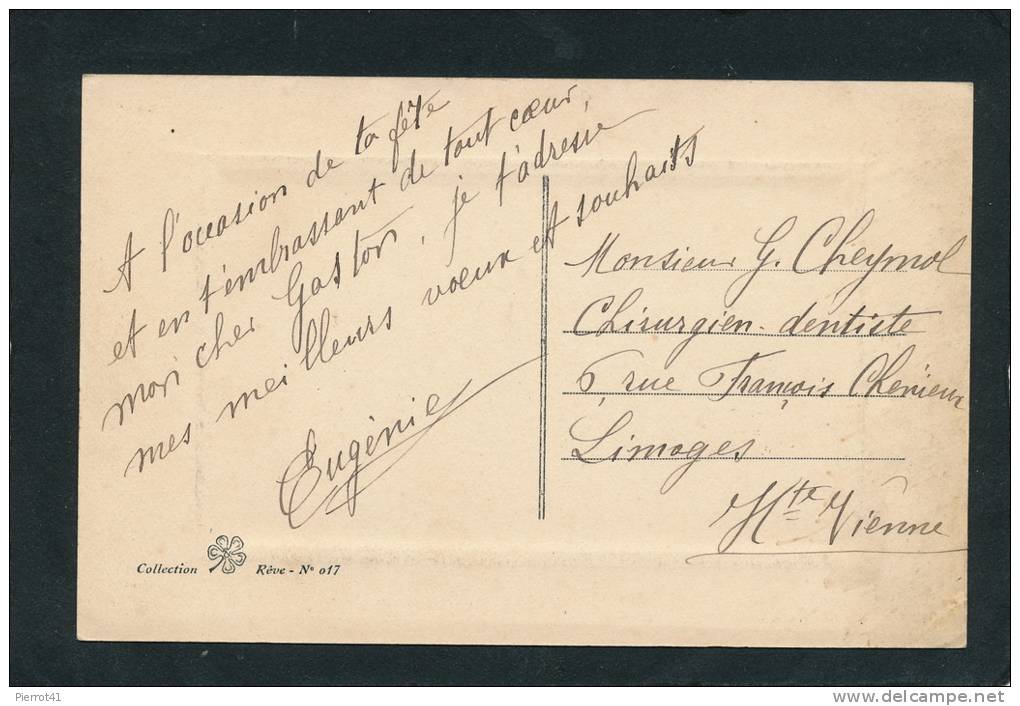 A l'occasion de ta fête
et en t'embrassant de tout cœur,
mon cher Gaston, je t'adresse
mes meilleurs vœux et souhaits
Eugénie
Monsieur G. Cheymol
Chirurgien-dentiste
6, rue François Chénieux
Limoges
Hte Vienne
Collection Rêve - No 017
Pierrot41
www.delcampe.net